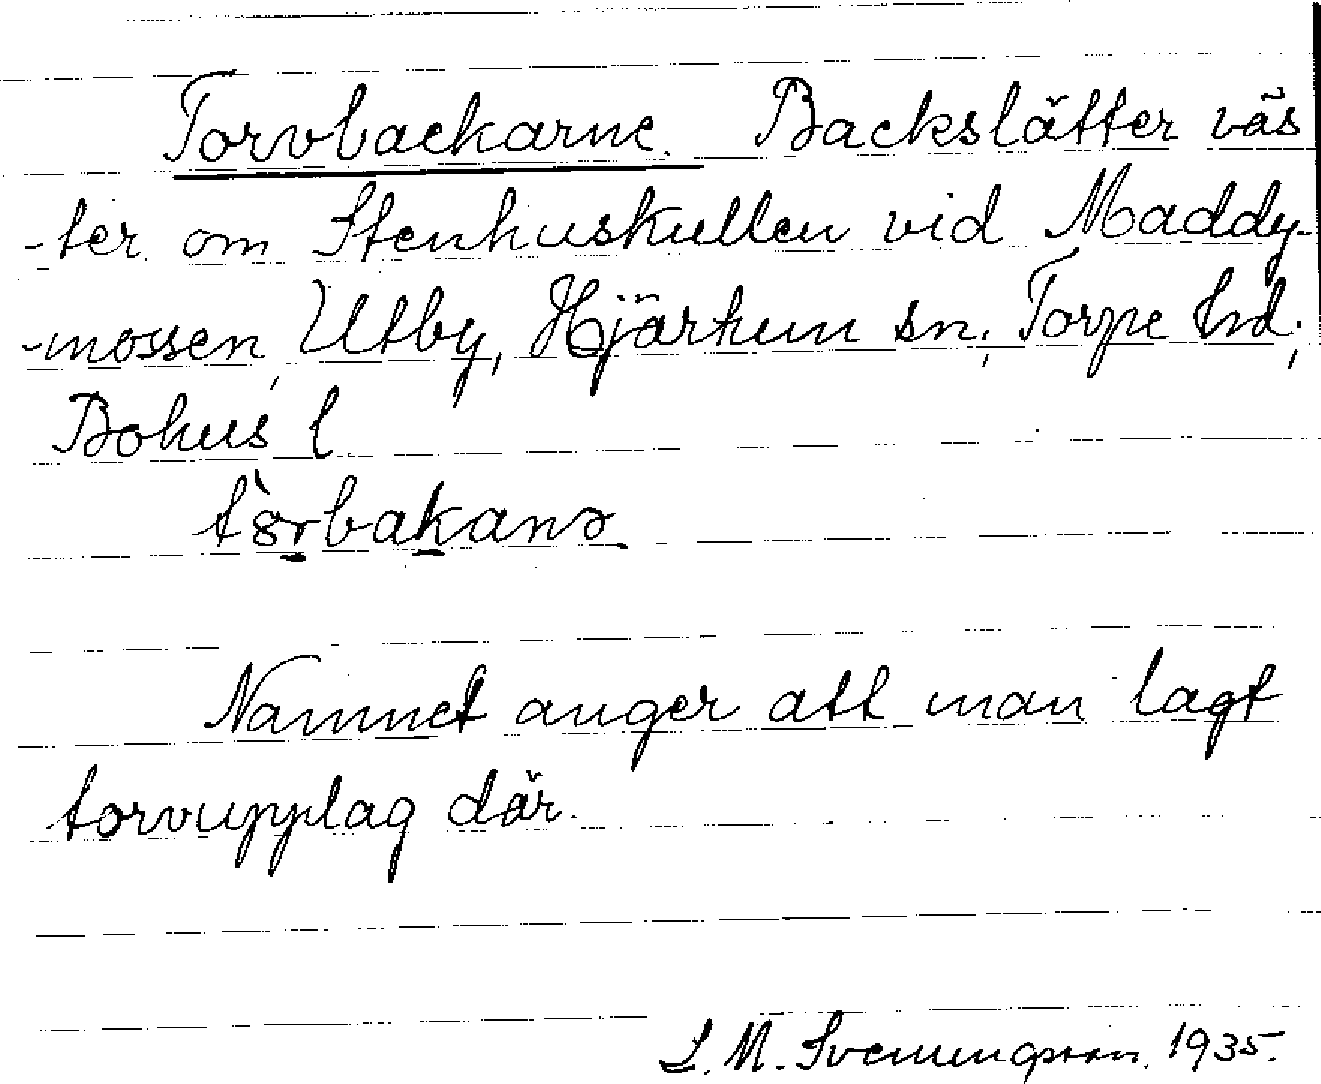 Torvbackarne. Backslätter väs
-ter om Stenhuskullen vid Maddy-
-mossen, Utby, Hjärtum sn; Torpe hd,
Bohus l
tȣ̀rbakanə
Namnet anger att man lagt
torvupplag där.
L. M. Svenungsson. 1935.